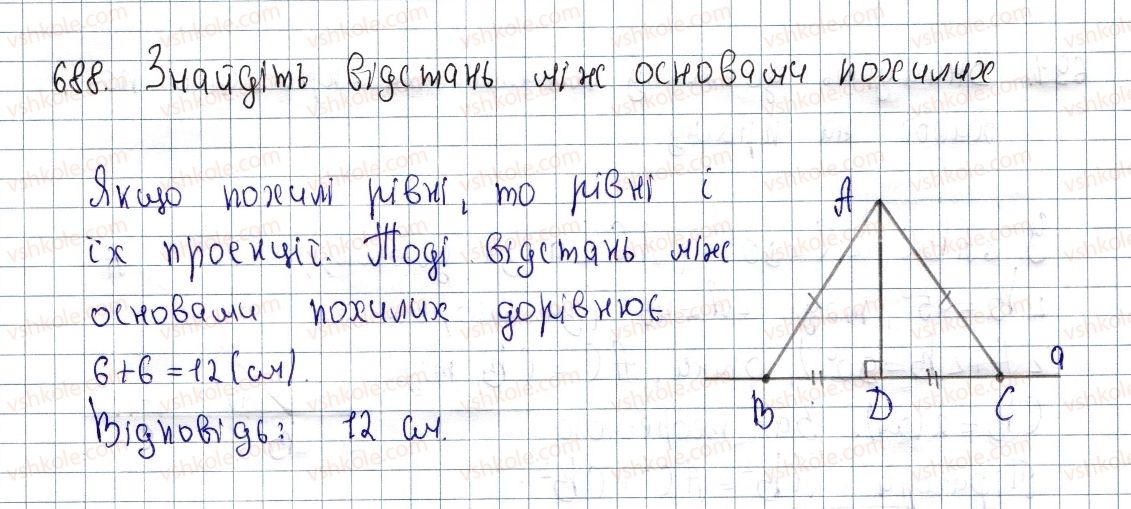 688. Знайдіть відстань між основами похилих
Якщо похилі рівні, то рівні і
їх проекції. Тоді відстань між
основами похилих дорівнює
6+6=12(см).
Відповідь: 12 см.
A
a
B D C
vshkole.com